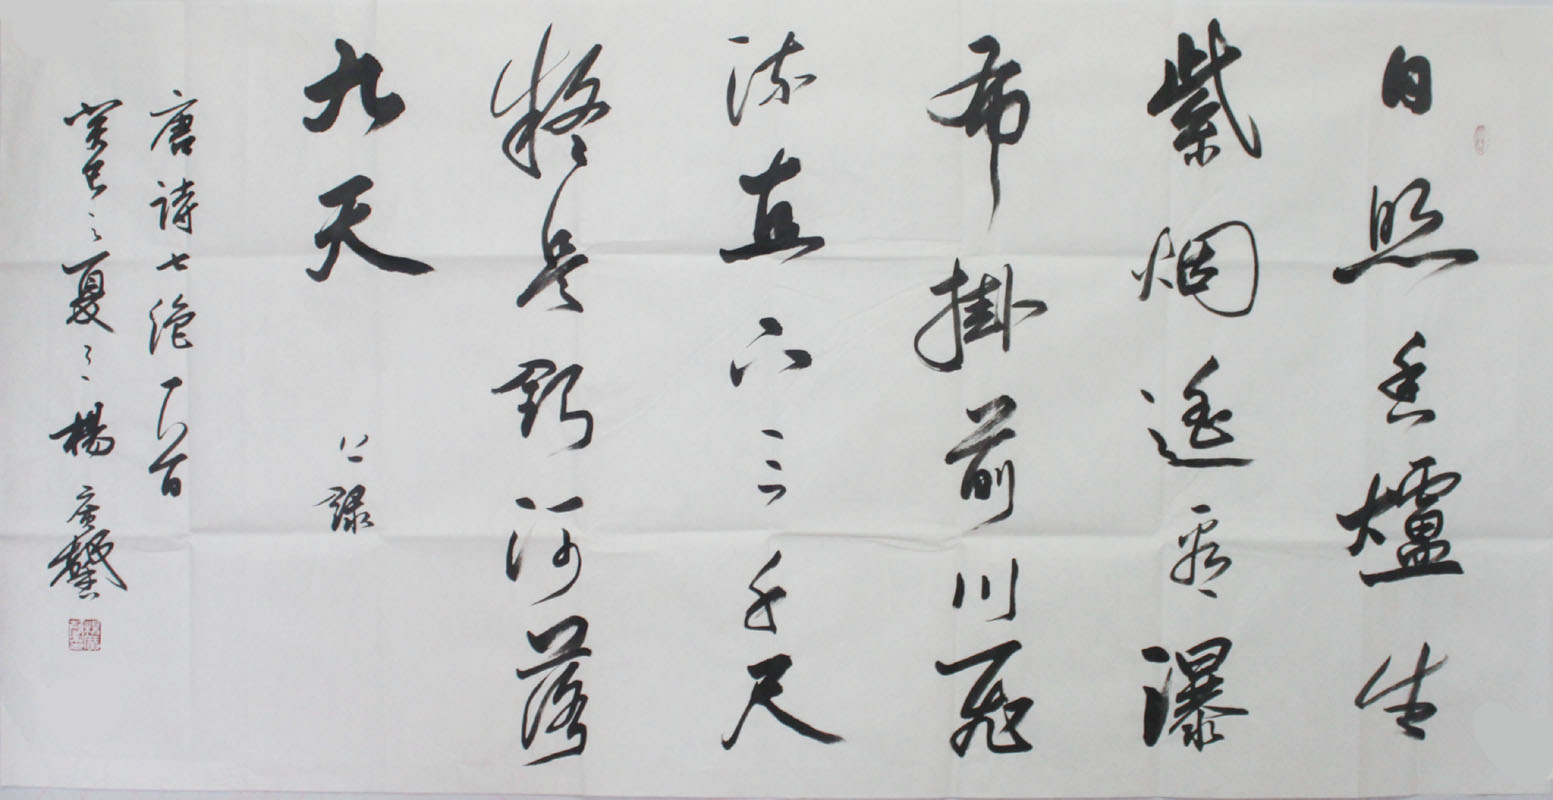 日照香爐生
紫烟遥看瀑
布掛前川飛
流直下三千尺
疑是銀河落
九天 録
唐詩七絶一首
癸巳之夏 楊廣馨